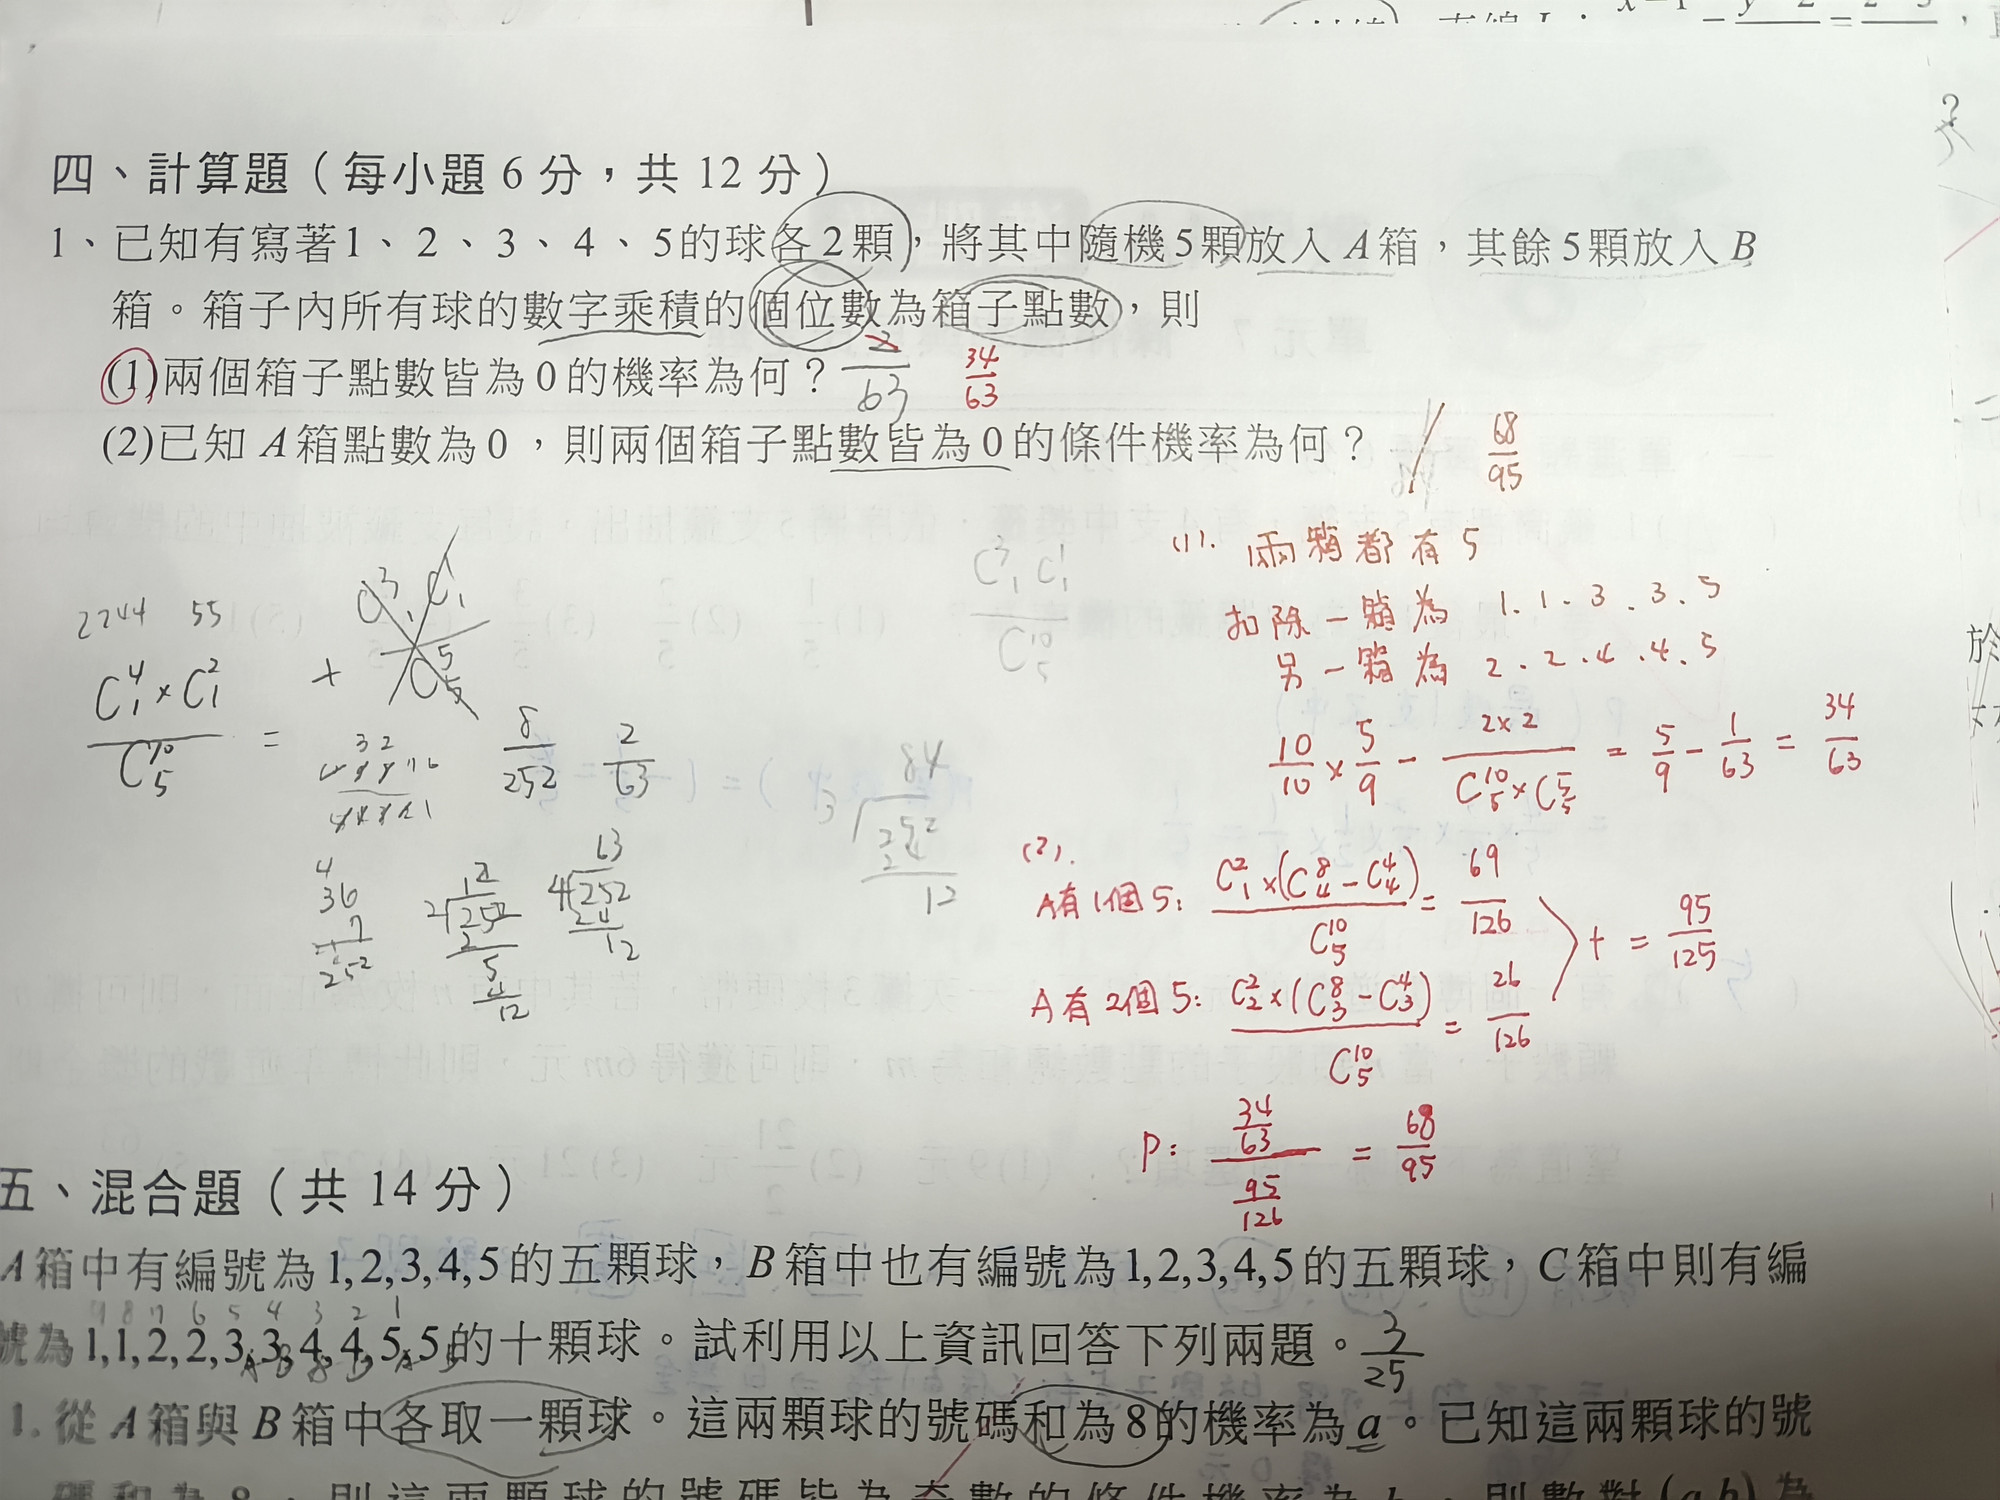 四、計算題（每小題 6 分，共 12 分）
1、已知有寫著1、2、3、4、5的球各2顆，將其中隨機5顆放入 A箱，其餘5顆放入 B
箱。箱子內所有球的數字乘積的個位數為箱子點數，則
(1)兩個箱子點數皆為0的機率為何？ 2/63 34/63
(2)已知 A箱點數為0，則兩個箱子點數皆為0的條件機率為何？ 68/95
(1). 兩箱都有 5
扣除一箱為 1.1.3.3.5
另一箱為 2.2.4.4.5
10/10 × 5/9 - 2×2/(C^10_5 × C^5_5) = 5/9 - 1/63 = 34/63
2244 55
C^4_1 × C^2_1 / C^10_5 =
+ C^3_1 C^1_1 / C^5_5
C^3_1 C^1_1 / C^10_5
8/252 2/63
(2).
A有1個5: C^2_1 ×(C^8_4 - C^4_4) / C^10_5 = 69/126
A有2個5: C^2_2 ×(C^8_3 - C^4_3) / C^10_5 = 26/126
+ = 95/125
P: 34/63 / 95/126 = 68/95
五、混合題（共 14 分）
A箱中有編號為1,2,3,4,5的五顆球，B箱中也有編號為1,2,3,4,5的五顆球，C箱中則有編
號為1,1,2,2,3,3,4,4,5,5的十顆球。試利用以上資訊回答下列兩題。 3/25
1. 從 A箱與 B箱中各取一顆球。這兩顆球的號碼和為8的機率為a。已知這兩顆球的號
碼和為8，則這兩顆球的號碼皆為奇數的條件機率為b，則數對(a,b)為